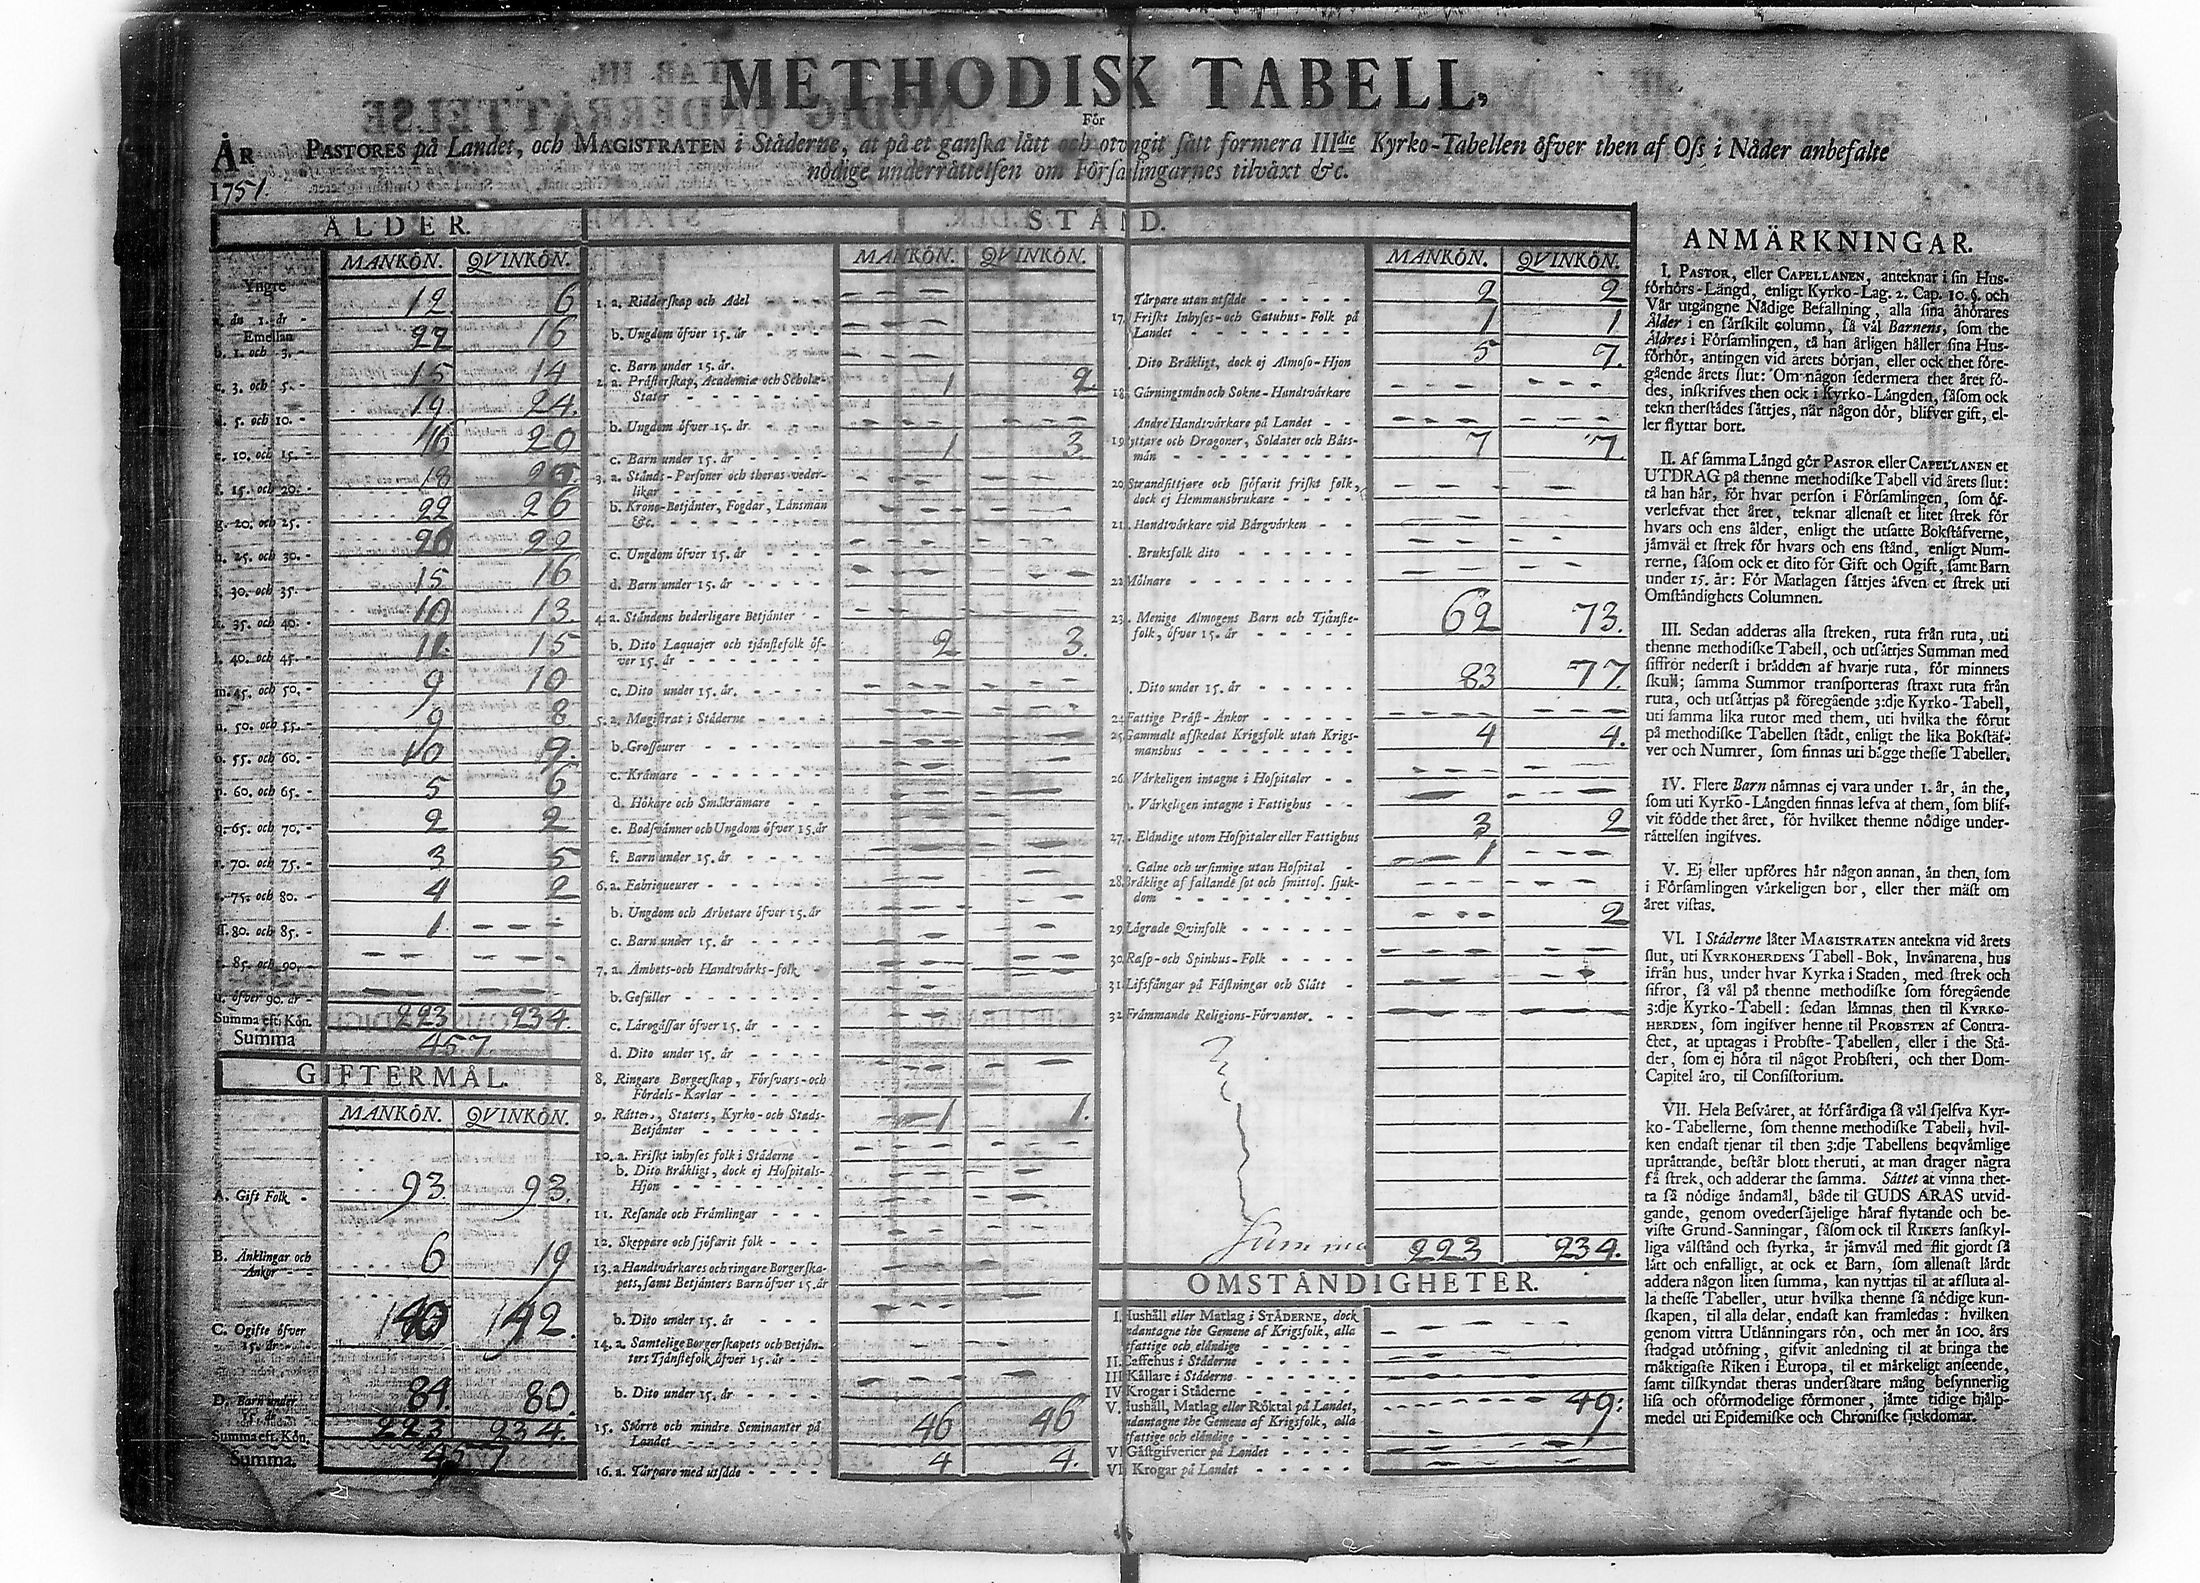 METHODISK TABELL,
För
ÅR PASTORES på Landet, och MAGISTRATEN i Städerne, at på et ganska lätt och otvngit sätt formera IIIdie Kyrko-Tabellen öfver then af Oss i Nåder anbefalte
1751. nödige underrättelsen om Församlingarnes tilväxt &c.
ÅLDER.
MANKÖN. QVINKÖN.
Yngre
a. än 1. år - 12 6
Emellan
b. 1. och 3. - 22 16
c. 3. och 5. - 15 14
d. 5. och 10. - 19 24.
e. 10. och 15. - 16 20
f. 15. och 20: - 18
g. 20. och 25. - 22 26
h. 25. och 30. - 20 22
i. 30. och 35. - 15 16
k. 35. och 40: - 10 13
l. 40. och 45. - 11. 15
m. 45. och 50. - 9 10
n. 50. och 55. - 9 8
o. 55. och 60. - 10 9.
p. 60. och 65. - 5 6
q. 65. och 70. - 2 2
r. 70. och 75. - 3 5
s. 75. och 80. - 4 2
ss. 80. och 85. - 1. - - -
t. 85. och 90. - - - - - - -
u. öfver 90. år -
Summa eft. Kön. 223 234.
Summa 457
GIFTERMÅL.
MANKÖN. QVINKÖN.
A. Gift Folk - 93. 93.
B. Änklingar och
Änkor - - 6 19
C. Ogifte öfver
15. år - - 142.
D. Barn under
15. år 84. 80.
Summa eft. Kön. 223 234.
Summa. 457
STÅND.
MANKÖN. QVINKÖN.
1. a. Ridderskap och Adel
b. Ungdom öfver 15. år - -
c. Barn under 15. år.
2. a. Prästerskap, Academiæ och Scholæ-
Stater - - - - - - 1 2.
b. Ungdom öfver 15. år - -
c. Barn under 15. år - - - 1 3
3. a. Stånds-Personer och theras veder-
likar - - - - - -
b. Krono-Betjänter, Fogdar, Länsmän
&c. - - - - - -
c. Ungdom öfver 15. år - - -
d. Barn under 15. år - - - -
4. a. Ståndens hederligare Betjänter -
b. Dito Laquajer och tjänstefolk öf-
ver 15. år - - - - - 2 3.
c. Dito under 15. år. - - - -
5. a. Magistrat i Städerne - - -
b. Grosseurer - - - - - -
c. Krämare - - - - - -
d. Hökare och Småkrämare - -
e. Bodsvänner och Ungdom öfver 15. år
f. Barn under 15. år - - - -
6. a. Fabriqueurer - - - - -
b. Ungdom och Arbetare öfver 15. år
c. Barn under 15. år - - - -
7. a. Ämbets-och Handtvärks-folk
b. Gesäller - - - - - -
c. Lärogåssar öfver 15. år - - -
d. Dito under 15. år - - - -
8, Ringare Borgerskap, Försvars-och
Fördels-Karlar - - - - -
9. Rätte., Staters, Kyrko-och Stads-
Betjänter - - - - - - 1 1.
10. a. Friskt inhyses folk i Städerne -
b. Dito Bräkligt, dock ej Hospitals-
Hjon - - - - - -
11. Resande och Främlingar - - -
12. Skeppare och sjöfarit folk - - -
13. a. Handtvärkares och ringare Borgerska-
pets, samt Betjänters Barn öfver 15. år
b. Dito under 15. år - - - -
14. a. Samtelige Borgerskapets och Betjän-
ters Tjänstefolk öfver 15. år - -
b. Dito under 15. år - - - -
15. Större och mindre Seminanter på
Landet - - - - - - 46 46
16. a. Tårpare med utsäde - - - 4 4.
MANKÖN. QVINKÖN.
Tårpare utan utsäde - - - - - 2 2
17. Friskt Inhyses-och Gatuhus-Folk på
Landet - - - - - - 1 1
. Dito Bräkligt, dock ej Almoso-Hjon 5 7.
18. Gärningsmän och Sokne-Handtvärkare
Andre Handtvärkare på Landet - -
19. Ryttare och Dragoner, Soldater och Båts-
män - - - - - - - 7 7.
20. Strandsittjare och sjöfarit friskt folk,
dock ej Hemmansbrukare - - -
21. Handtvärkare vid Bärgvärken - -
. Bruksfolk dito - - - - - -
22. Mölnare - - - - - - - -
23. Menige Almogens Barn och Tjänste-
folk, öfver 15. år - - - - - 62 73.
. Dito under 15. år - - - - - 83 77.
24. Fattige Präst-Änkor - - - - -
25. Gammalt afskedat Krigsfolk utan Krigs-
manshus - - - - - - 4 4.
26. Värkeligen intagne i Hospitaler - -
. Värkeligen intagne i Fattighus - -
27. Eländige utom Hospitaler eller Fattighus 3 2
. Galne och ursinnige utan Hospital - 1 - - -
28. Bräklige af fallande sot och smittos. sjuk-
dom - - - - - - - -
29. Lägrade Qvinfolk - - - - - - - - - 2
30. Rasp-och Spinhus-Folk - - - -
31. Lifsfångar på Fästningar och Slått -
32. Främmande Religions-Förvanter. - -
Summa 223 234.
OMSTÄNDIGHETER.
I. Hushåll eller Matlag i STÄDERNE, dock
undantagne the Gemene af Krigsfolk, alla
utfattige och eländige - - - - -
II. Caffehus i Städerne - - - - -
III. Källare i Städerne - - - - -
IV. Krogar i Städerne - - - - -
V. Hushåll, Matlag eller Röktal på Landet, - - - 49:
undantagne the Gemene af Krigsfolk, alla
utfattige och eländige - - - - -
VI. Gästgifverier på Landet - - - -
VI. Krogar på Landet - - - - -
ANMÄRKNINGAR.
I. PASTOR, eller CAPELLANEN, anteknar i sin Hus-
förhörs-Längd, enligt Kyrko-Lag. 2. Cap. 10. §. och
Vår utgångne Nådige Befallning, alla sina åhörares
Ålder i en särskilt column, så väl Barnens, som the
Äldres i Församlingen, tå han årligen håller sina Hus-
förhör, antingen vid årets början, eller ock thet före-
gående årets slut: Om någon sedermera thet året fö-
des, inskrifves then ock i Kyrko-Längden, såsom ock
tekn therstädes sättjes, när någon dör, blifver gift, el-
ler flyttar bort.
II. Af samma Längd gör PASTOR eller CAPELLANEN et
UTDRAG på thenne methodiske Tabell vid årets slut:
tå han här, för hvar person i Församlingen, som öf-
verlefvat thet året, teknar allenast et litet strek för
hvars och ens ålder, enligt the utsatte Bokstäfverne,
jämväl et strek för hvars och ens stånd, enligt Num-
rerne, såsom ock et dito för Gift och Ogift, samt Barn
under 15. år: För Matlagen sättjes äfven et strek uti
Omständighets Columnen.
III. Sedan adderas alla streken, ruta från ruta, uti
thenne methodiske Tabell, och utsättjes Summan med
siffror nederst i brädden af hvarje ruta, för minnets
skull; samma Summor transporteras straxt ruta från
ruta, och utsättjas på föregående 3:dje Kyrko-Tabell,
uti samma lika rutor med them, uti hvilka the förut
på methodiske Tabellen stådt, enligt the lika Bokstäf-
ver och Numrer, som finnas uti bägge thesse Tabeller.
IV. Flere Barn nämnas ej vara under 1. år, än the,
som uti Kyrko-Längden finnas lefva af them, som blif-
vit födde thet året, för hvilket thenne nödige under-
rättelsen ingifves.
V. Ej eller upföres här någon annan, än then, som
i Församlingen värkeligen bor, eller ther mäst om
året vistas.
VI. I Städerne låter MAGISTRATEN antekna vid årets
slut, uti KYRKOHERDENS Tabell-Bok, Invånarena, hus
ifrån hus, under hvar Kyrka i Staden, med strek och
sifror, så väl på thenne methodiske som föregående
3:dje Kyrko-Tabell: sedan lämnas then til KYRKO-
HERDEN, som ingifver henne til PROBSTEN af Contra-
ctet, at uptagas i Probste-Tabellen, eller i the Stä-
der, som ej höra til något Probsteri, och ther Dom-
Capitel äro, til Consistorium.
VII. Hela Besväret, at förfärdiga så väl sjelfva Kyr-
ko-Tabellerne, som thenne methodiske Tabell, hvil-
ken endast tjenar til then 3:dje Tabellens beqvämlige
uprättande, består blott theruti, at man drager några
få strek, och adderar the samma. Sättet at vinna thet-
ta så nödige ändamål, både til GUDS ÄRAS utvid-
gande, genom ovedersäjelige häraf flytande och be-
viste Grund-Sanningar, såsom ock til RIKETS sanskyl-
liga välstånd och styrka, är jämväl med flit gjordt så
lätt och enfalligt, at ock et Barn, som allenast lärdt
addera någon liten summa, kan nyttjas til at afsluta al-
la thesse Tabeller, utur hvilka thenne så nödige kun-
skapen, til alla delar, endast kan framledas: hvilken
genom vittra Utlänningars rön, och mer än 100. års
stadgad utöfning, gifvit anledning til at bringa the
mäktigaste Riken i Europa, til et märkeligt anseende,
samt tilskyndat theras undersåtare mång besynnerlig
lisa och oförmodelige förmoner, jämte tidige hjälp-
medel uti Epidemiske och Chroniske sjukdomar.